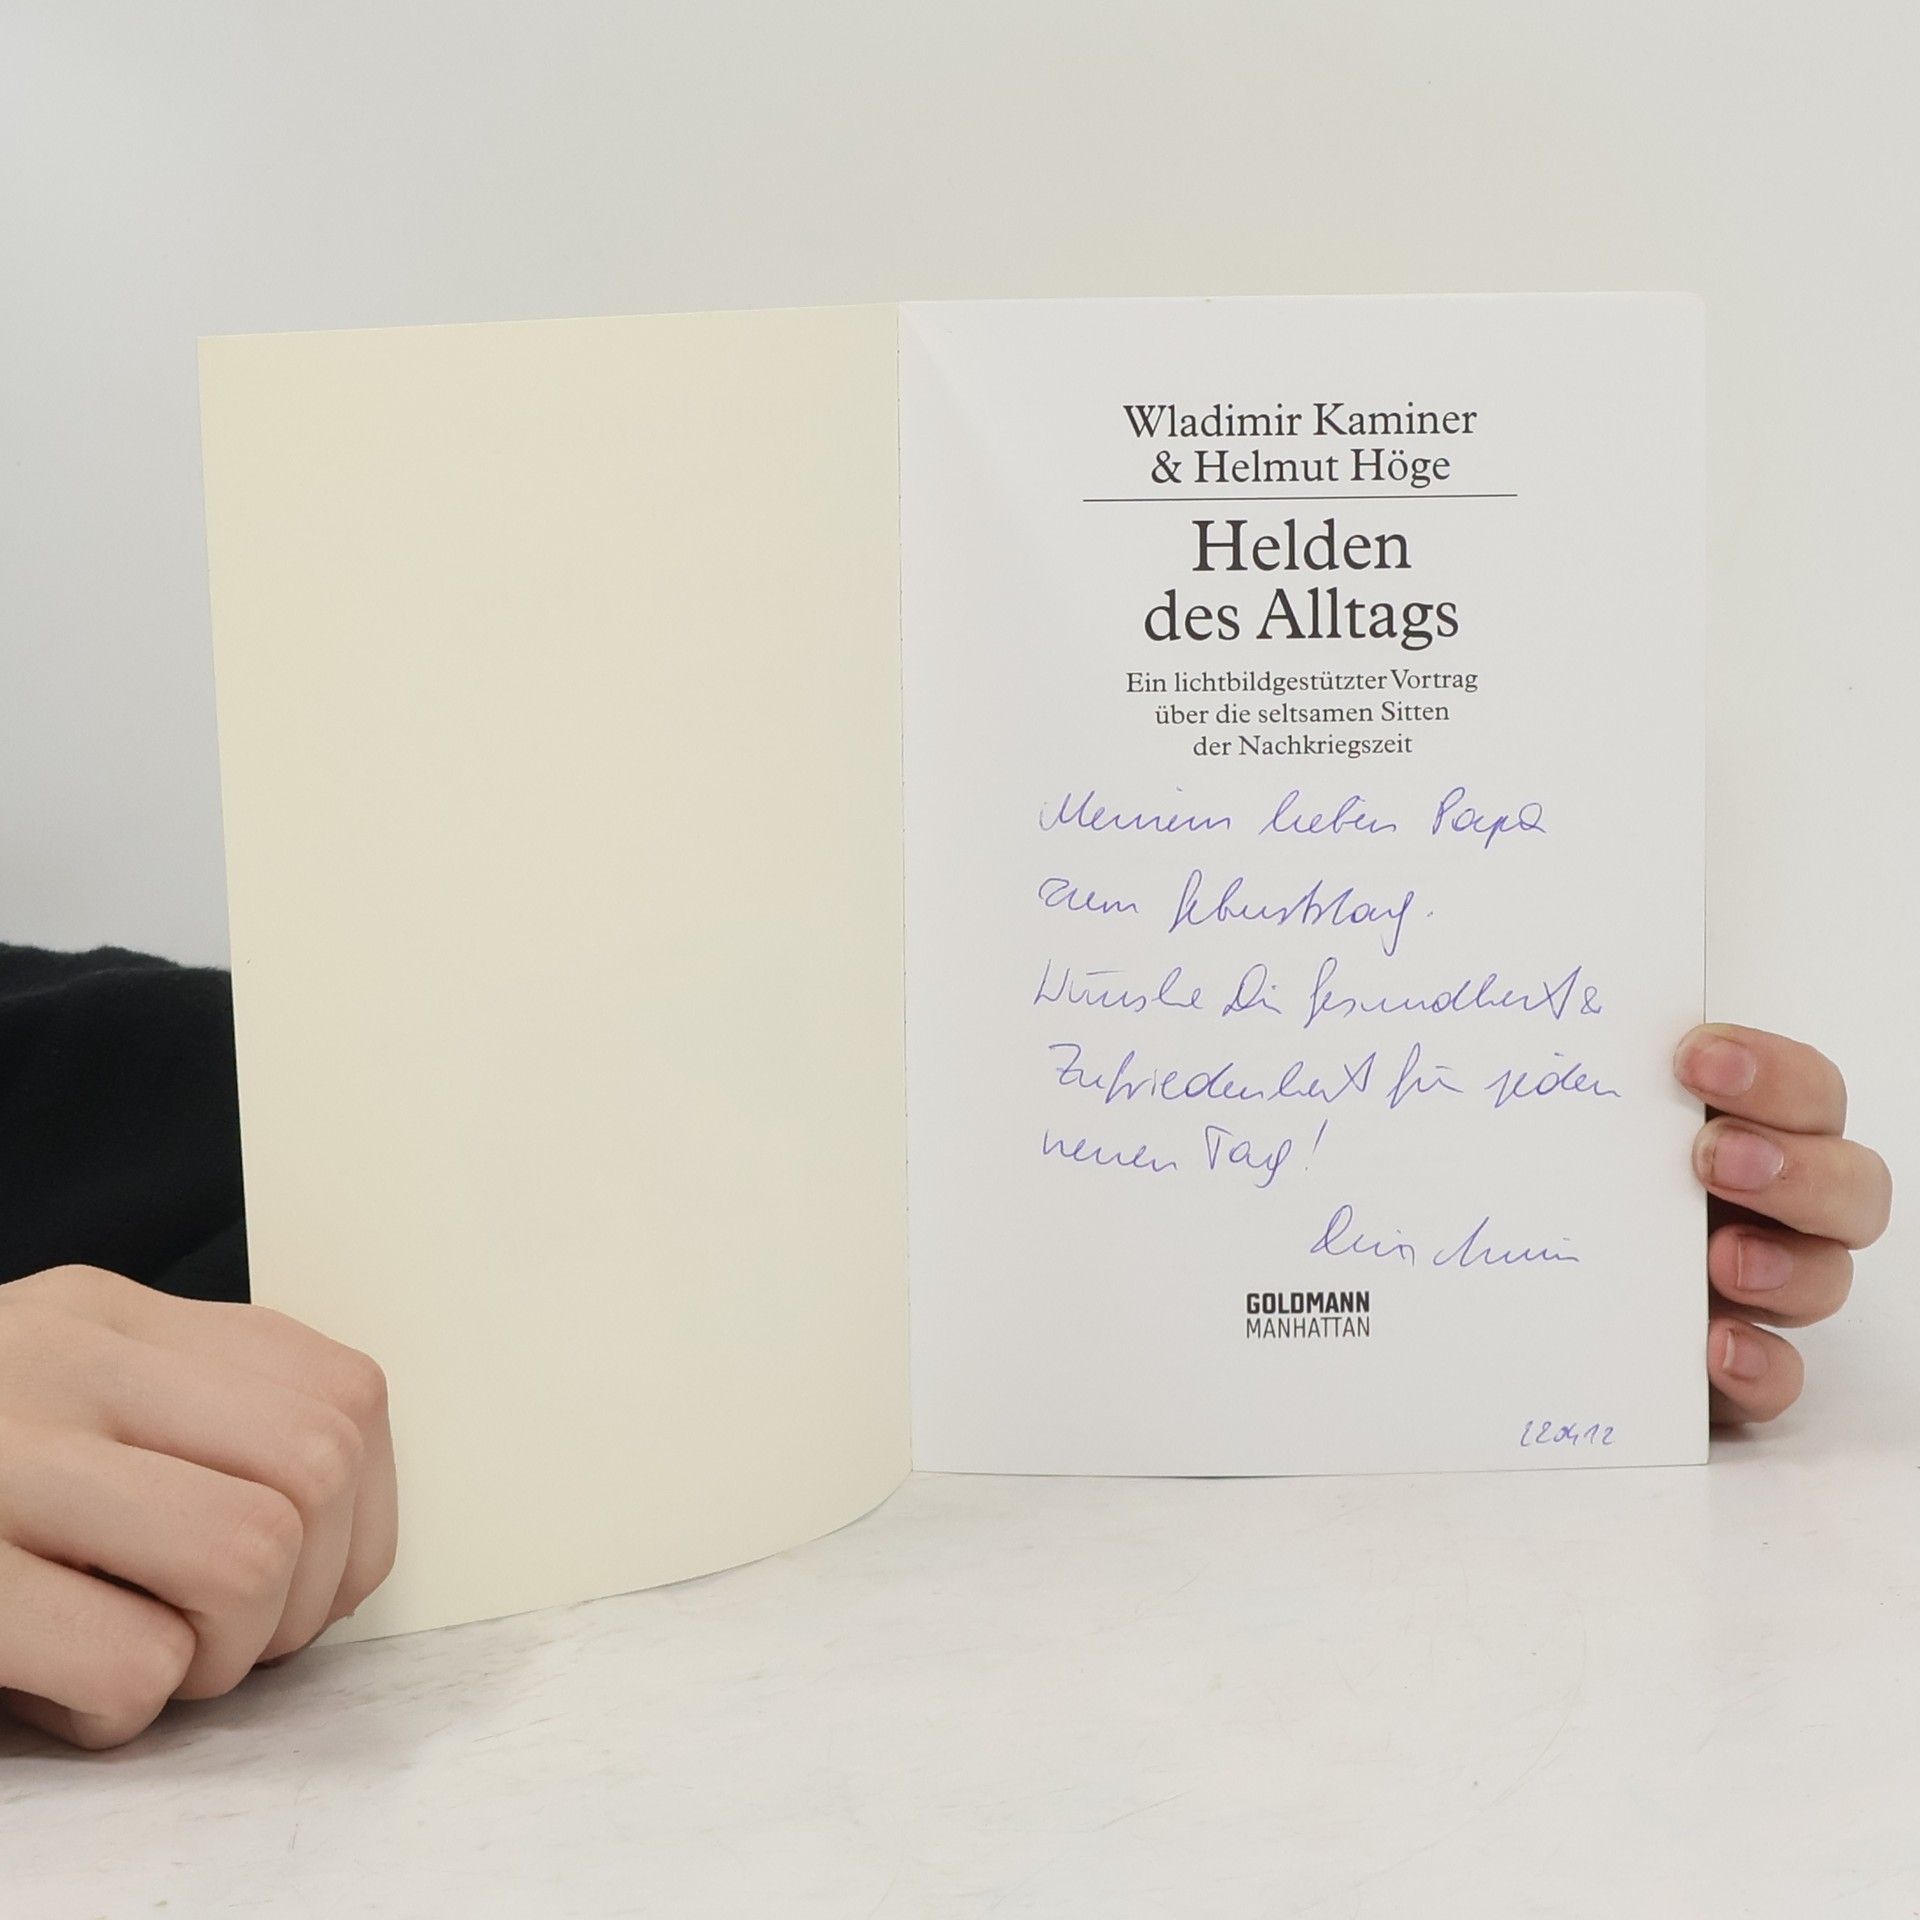 Wladimir Kaminer
& Helmut Höge
Helden
des Alltags
Ein lichtbildgestützter Vortrag
über die seltsamen Sitten
der Nachkriegszeit
Meinem lieben Papa
zum Geburtstag.
Wünsche Dir Gesundheit &
Zufriedenheit für jeden
neuen Tag!
Dein
GOLDMANN
MANHATTAN
220412